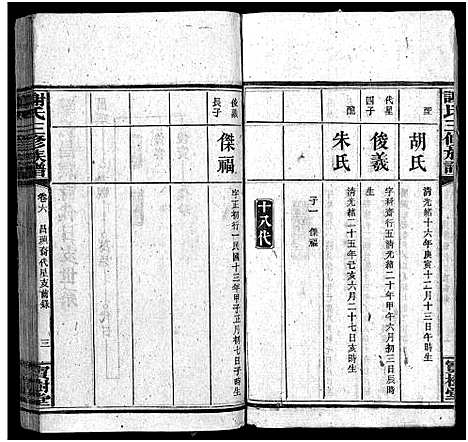 謝氏三修族譜
配
胡氏
清光緒十六年庚寅十二月十三日午時生
代星
四子
俊義
字科齋行五清光緒二十年甲午六月初三日辰時
生
配
朱氏
清光緒二十五年己亥六月二十七日亥時生
子一 傑福
十八代
俊義
長子
傑福
字正初行一民國十三年甲子正月初七日子時生
謝氏三修族譜
卷六
三
寶樹堂